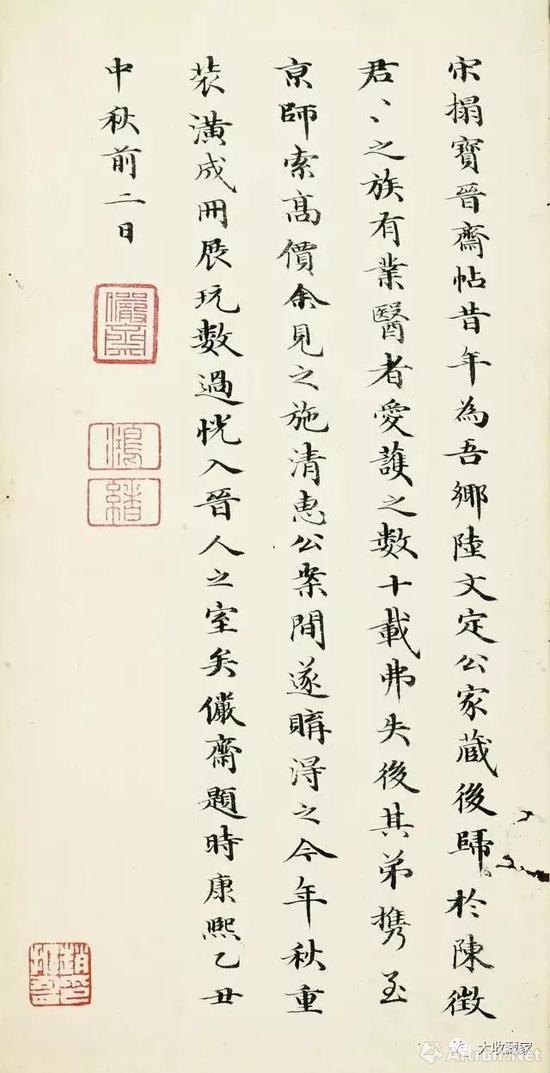 宋搨寶晉齋帖昔年為吾鄉陸文定公家蔵後歸於陳徵
君〻之族有業醫者愛護之數十載弗失後其弟攜至
京師索髙價余見之施清惠公案間遂購淂之今年秋重
装潢成冊展玩數過恍入晉人之室矣儼齋題時康熙乙丑
中秋前二日
儼齋
鴻緒
大收藏家
Artron.Net